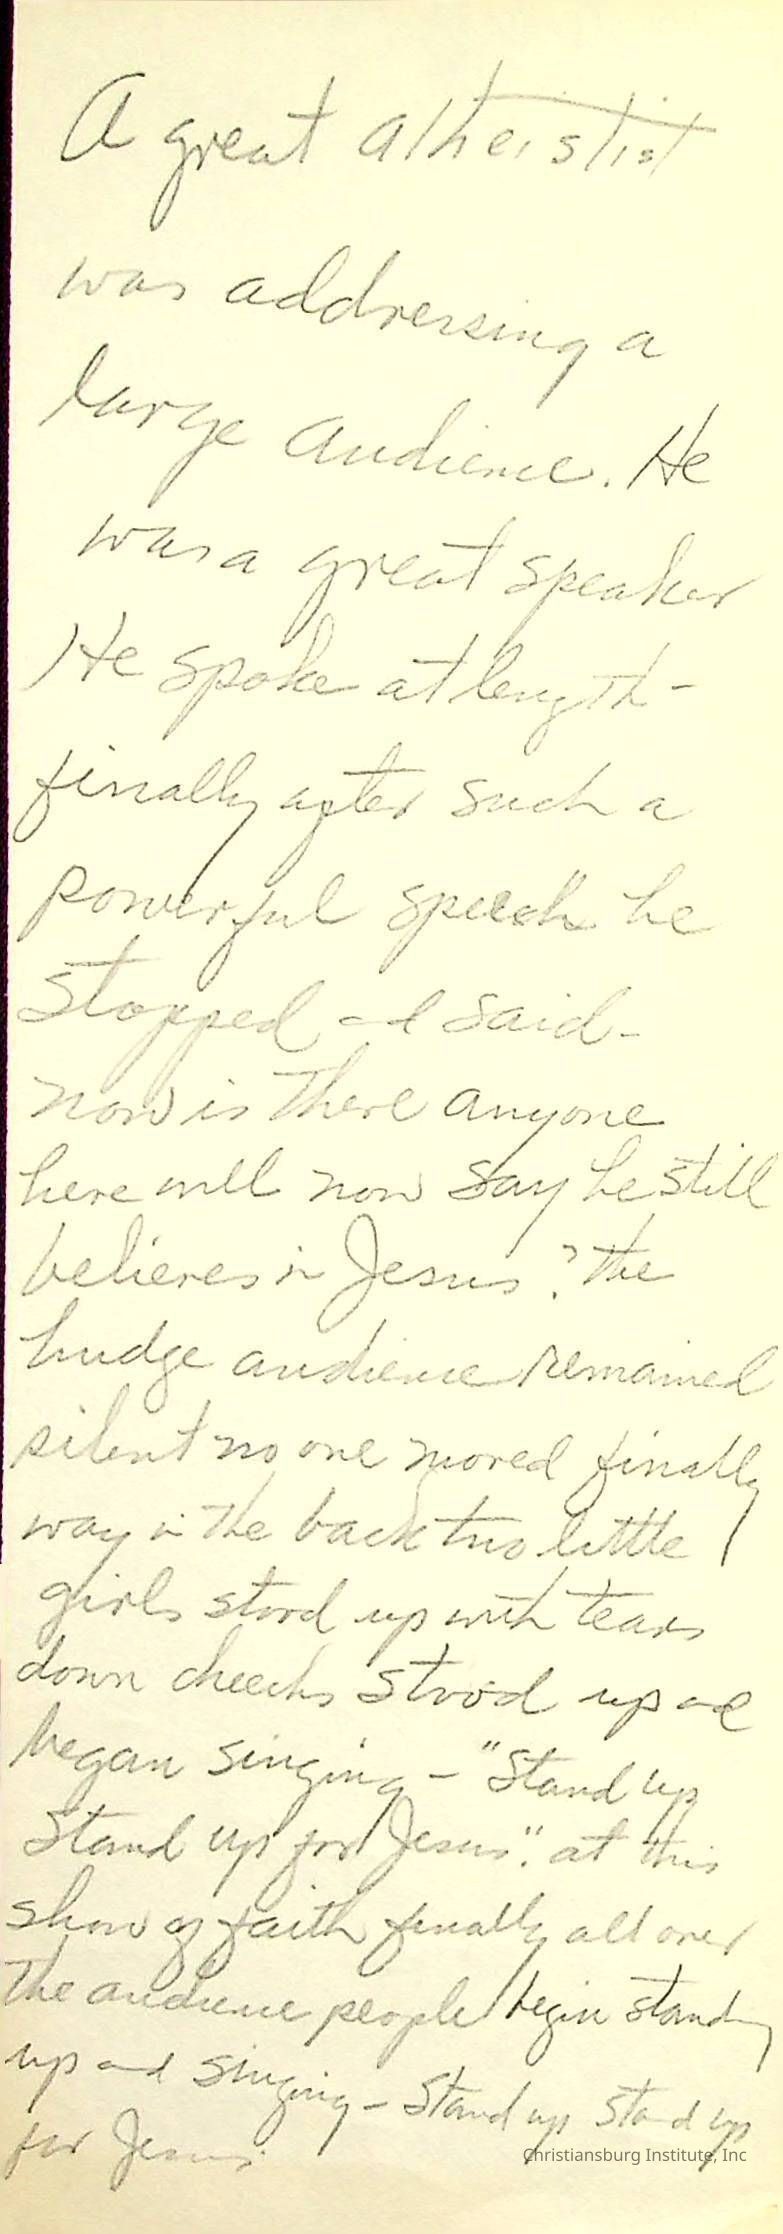 A great atheistist
was addressing a
large audience. He
was a great speaker
He spoke at length -
finally after such a
powerful speech he
stopped and said -
now is there anyone
here will now say he still
believes in Jesus? the
hudge audience remained
silent no one moved finally
way in the back two little
girls stood up with tears
down cheeks stood up and
began singing - "Stand up
Stand up for Jesus". at this
show of faith finally all over
the audience people begin standing
up and singing - Stand up Stand up
for Jesus.
Christiansburg Institute, Inc